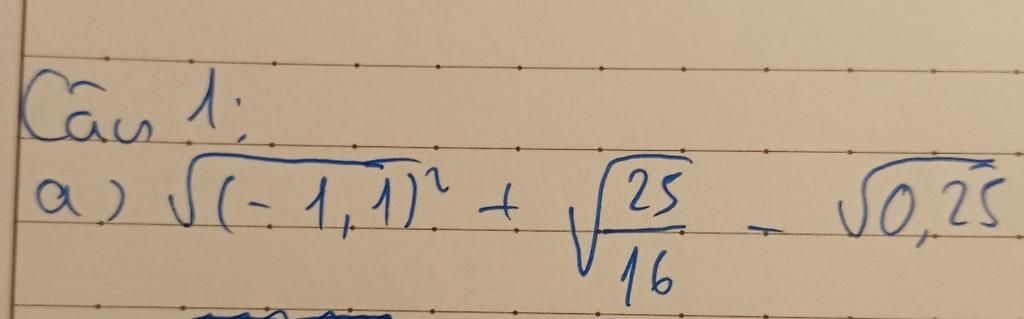 Câu 1:
a) √(-1,1)² + √25/16 - √0,25